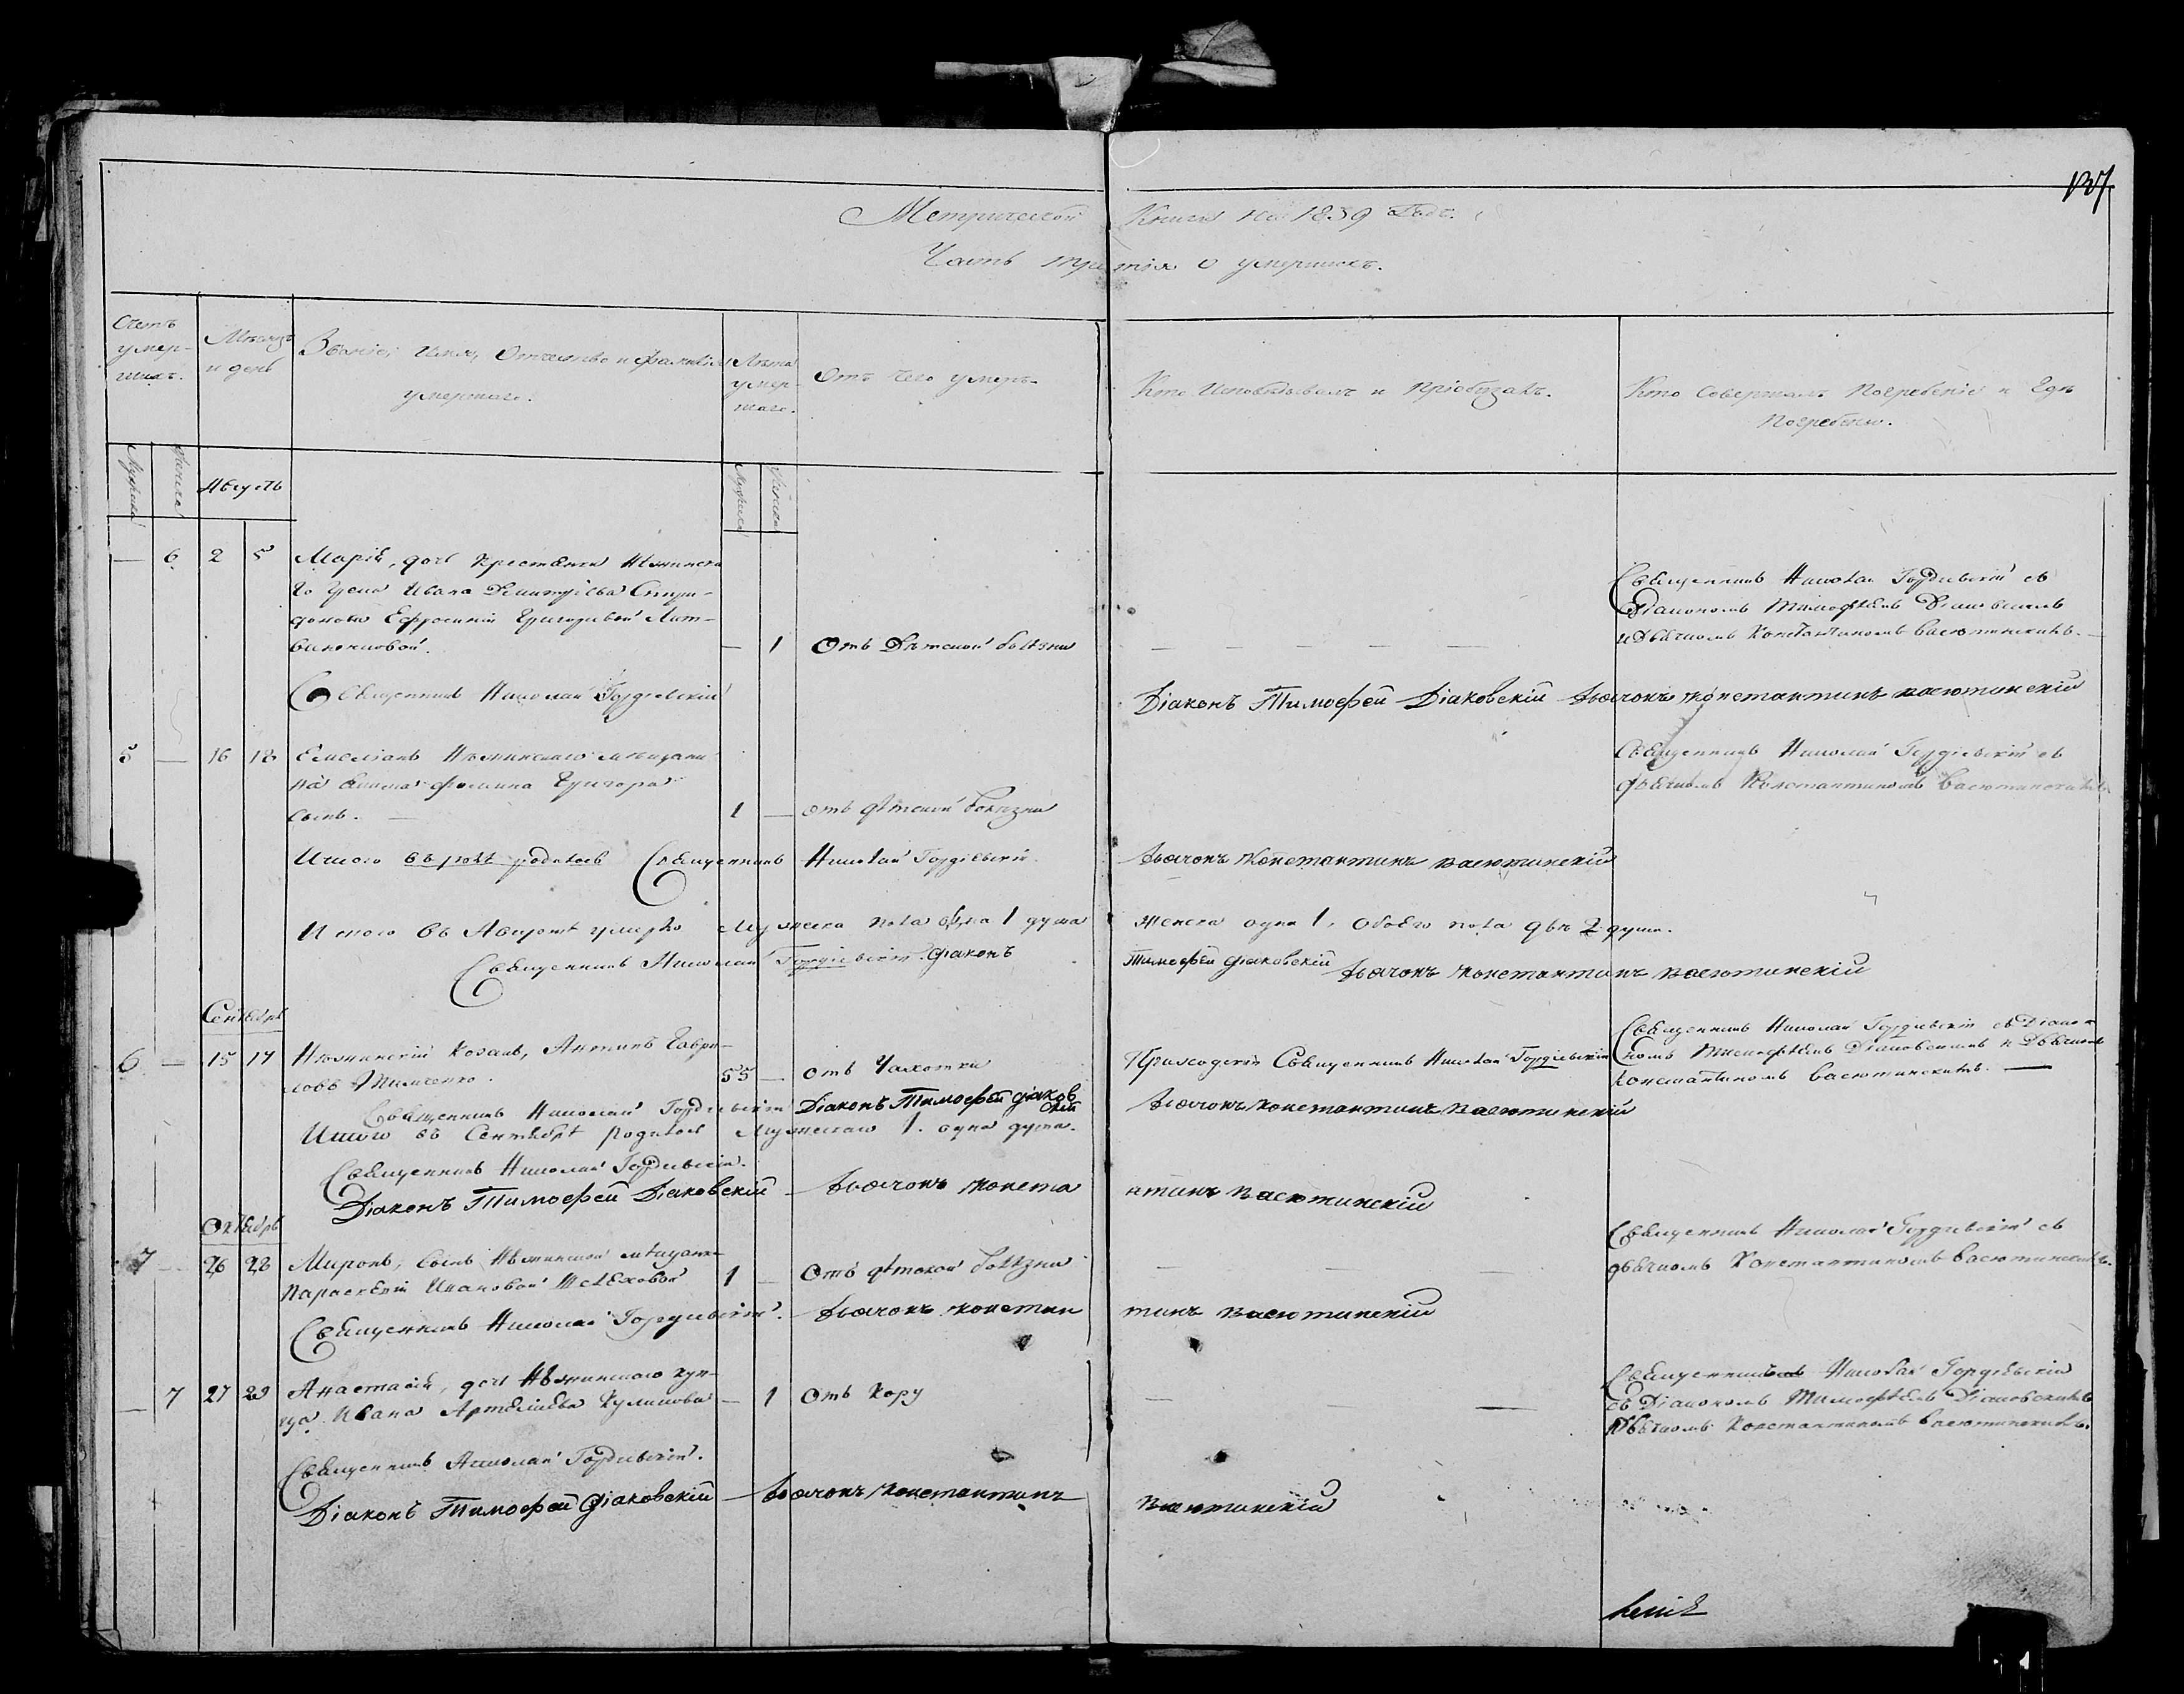 137
Метрической Книги на 1839 Годъ.
Часть третія о умершихъ.
Счетъ умер-шихъ.
Мѣсяцъ и день
Званіе, Имя, Отчество и фамилія умершаго.
Лѣта умер-шаго.
Отъ чего умеръ.
Кто Исповѣдывалъ и пріобщалъ.
Кто Совершалъ Погребеніе и Гдѣ Погребены.
Мужска Женска
Августъ
Мужска Женска
— 6 2 5 Марія, дочь Крестьянина Нѣжинска
го уезда Ивана Димитріева
Ефросиніи Григорьевой Лит-
виненковой. — 1 Отъ Дѣтской болѣзни — — — — —
Священникъ Николай Гордіевскій съ
Діакономъ Тимофѣемъ Діаковскимъ
и Дьячкомъ Константиномъ Васютинскимъ.
Священникъ Николай Гордіевскій Діаконъ Тимофей Діаковскій Дьячокъ Константинъ Васютинскій
5 — 16 18 Емеліанъ Нѣжинскаго мѣщани
на Фомина Григора
сынъ. — 1 — отъ дѣтской болѣзни
Священникъ Николай Гордіевскій съ
дьячкомъ Константиномъ Васютинскимъ
Итого родилось Священникъ Николай Гордіевскій. Дьячокъ Константинъ Васютинскій
Итого въ Августѣ умерло Мужеска пола одна 1 душа женска одна 1, обоего пола двѣ 2 души.
Священникъ Николай Гордіевскій. Діаконъ Тимофей Діаковскій Дьячокъ Константинъ Васютинскій
Сентябрь
6 — 15 17 Нѣжинскій Козакъ, Антипъ Гаври-
ловъ Тимченко. 55 — отъ Чахотки Приходскій Священникъ Николай Гордіевскій
Священникъ Николай Гордіевскій съ Діако
номъ Тимофѣемъ Діаковскимъ и Дьячкомъ
Константиномъ Васютинскимъ. —
Священникъ Николай Гордіевскій Діаконъ Тимофей Діаковскій Дьячокъ Константинъ Васютинскій
Итого въ Сентябрѣ родилось Мужескаго 1. одна душа.
Священникъ Николай Гордіевскій.
Діаконъ Тимофей Діаковскій — Дьячокъ Константинъ Васютинскій
Октябрь
7 — 26 28 Миронъ, сынъ Нѣжинской мѣщанки
Параскевіи Ивановой 1 — Отъ дѣтской болѣзни — — —
Священникъ Николай Гордіевскій съ
дьячкомъ Константиномъ Васютинскимъ.
Священникъ Николай Гордіевскій. — Дьячокъ Константинъ Васютинскій
— 7 27 29 Анастасія, дочь Нѣжинскаго куп-
ца Ивана Куликова — 1 Отъ Кору — —
Священникъ Николай Гордіевскій
съ Діакономъ Тимофѣемъ Діаковскимъ
и Дьячкомъ Константиномъ Васютинскимъ.
Священникъ Николай Гордіевскій.
Діаконъ Тимофей Діаковскій — Дьячокъ Константинъ Васютинскій